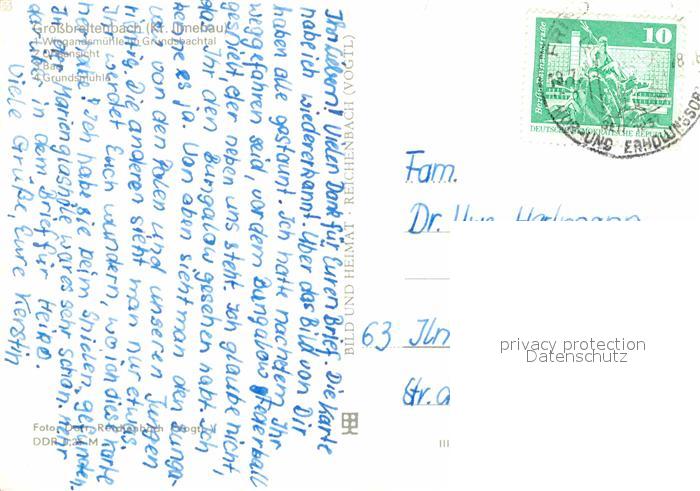 Großbreitenbach (Kr. Ilmenau)
1 Wiegandsmühle im Grundsbachtal
4 Grundsmühle
Foto: Darr, Reichenbach (Vogtl.)
DDR
M
BILD UND HEIMAT · REICHENBACH (VOGTL)
III
Ihr Lieben! Vielen Dank für Euren Brief. Die Karte
habe ich wiedererkannt. Über das Bild von Dir
haben alle gestaunt. Ich hatte nachdem Ihr
weggefahren seid, vor dem Bungalow Federball
gespielt, der neben uns steht. Ich glaube nicht,
daß Ihr den Bungalow gesehen habt. Ich
kenne es ja. Von oben sieht man den Bunga-
low von den Polen und unseren Jungen
richtig. Die anderen sieht man nur etwas.
Ihr werdet Euch wundern, wo ich die Karte
her habe! Ich habe sie beim Spielen gefunden.
In der Marienglashöhle war es sehr schön. Mehr
darüber in dem Brief für Heike.
Viele Grüße, Eure Kerstin
10
Berlin
DEUTSCHE DEMOKRATISCHE REPUBLIK
UND ERHOLUNGSOR
Fam.
Dr. Uwe Hartmann
63 Ilm
Str. d
privacy protection
Datenschutz